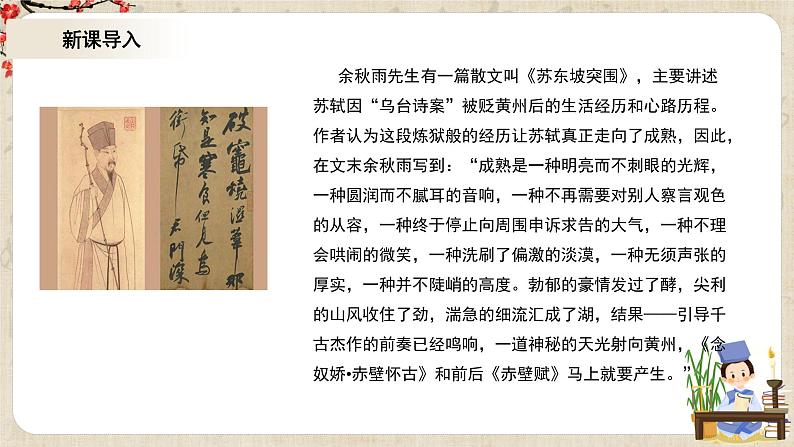 新课导入
余秋雨先生有一篇散文叫《苏东坡突围》，主要讲述
苏轼因“乌台诗案”被贬黄州后的生活经历和心路历程。
作者认为这段炼狱般的经历让苏轼真正走向了成熟，因此，
在文末余秋雨写到：“成熟是一种明亮而不刺眼的光辉，
一种圆润而不腻耳的音响，一种不再需要对别人察言观色
的从容，一种终于停止向周围申诉求告的大气，一种不理
会哄闹的微笑，一种洗刷了偏激的淡漠，一种无须声张的
厚实，一种并不陡峭的高度。勃郁的豪情发过了酵，尖利
的山风收住了劲，湍急的细流汇成了湖，结果——引导千
古杰作的前奏已经鸣响，一道神秘的天光射向黄州，《念
奴娇•赤壁怀古》和前后《赤壁赋》马上就要产生。”
破竈燒湿葦那
知是寒食但見烏
衔帋
君門深